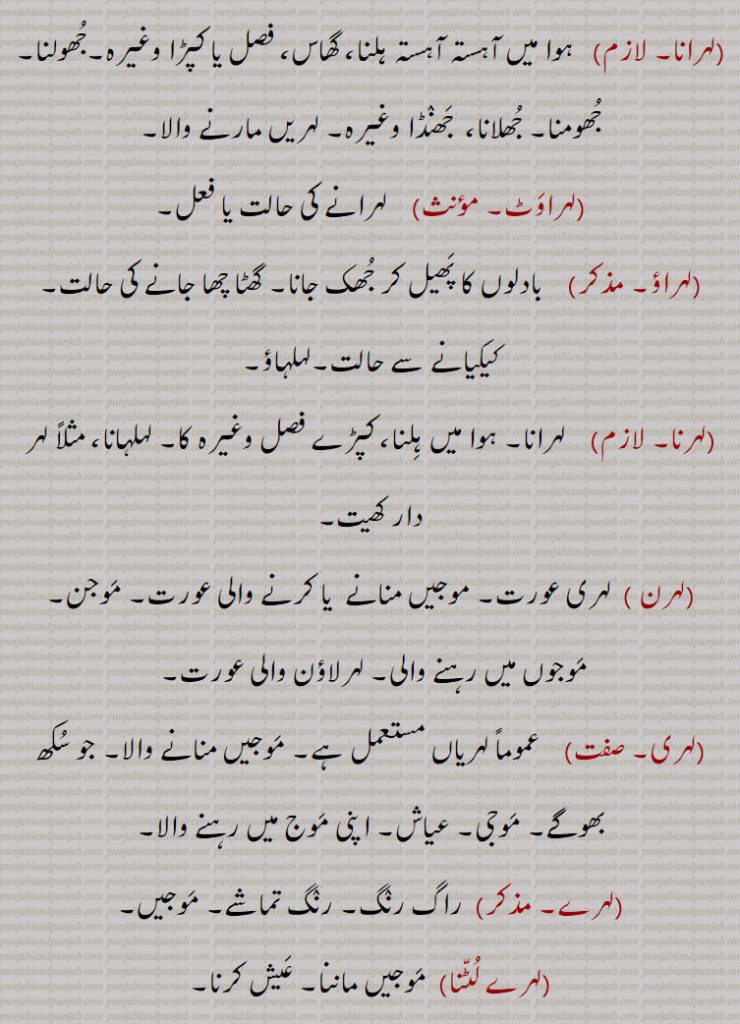 (لہرانا۔ لازم) ہوا میں آہستہ آہستہ ہلنا، گھاس، فصل یا کپڑا وغیرہ۔جُھولنا۔
جُھومنا۔ جُھلانا، جَھنْڈا وغیرہ۔ لہریں مارنے والا۔
(لہراوَٹ۔ مؤنث) لہرانے کی حالت یا فعل۔
(لہراؤ۔ مذکر) بادلوں کا پَھیل کر جُھک جانا۔ گھٹا چھا جانے کی حالت۔
کپکپانے سے حالت۔لہلہاؤ۔
(لہرنا۔ لازم) لہرانا۔ ہوا میں ہِلنا، کپڑے فصل وغیرہ کا۔ لہلہانا، مثلاً لہر
دار کھیت۔
(لہرن ) لہری عورت۔ موجیں منانے یا کرنے والی عورت۔ مَوجن۔
مَوجوں میں رہنے والی۔ لہرلاؤن والی عورت۔
(لہری۔ صفت) عموماً لہریاں مستعمل ہے۔ مَوجیں منانے والا۔ جو سُکھ
بھوگے۔ مَوجی۔ عیاش۔ اپنی مَوج میں رہنے والا۔
(لہرے۔ مذکر) راگ رنْگ۔ رنْگ تماشے۔ مَوجیں۔
(لہرے لُٹّنا) مَوجیں ماننا۔ عَیش کرنا۔